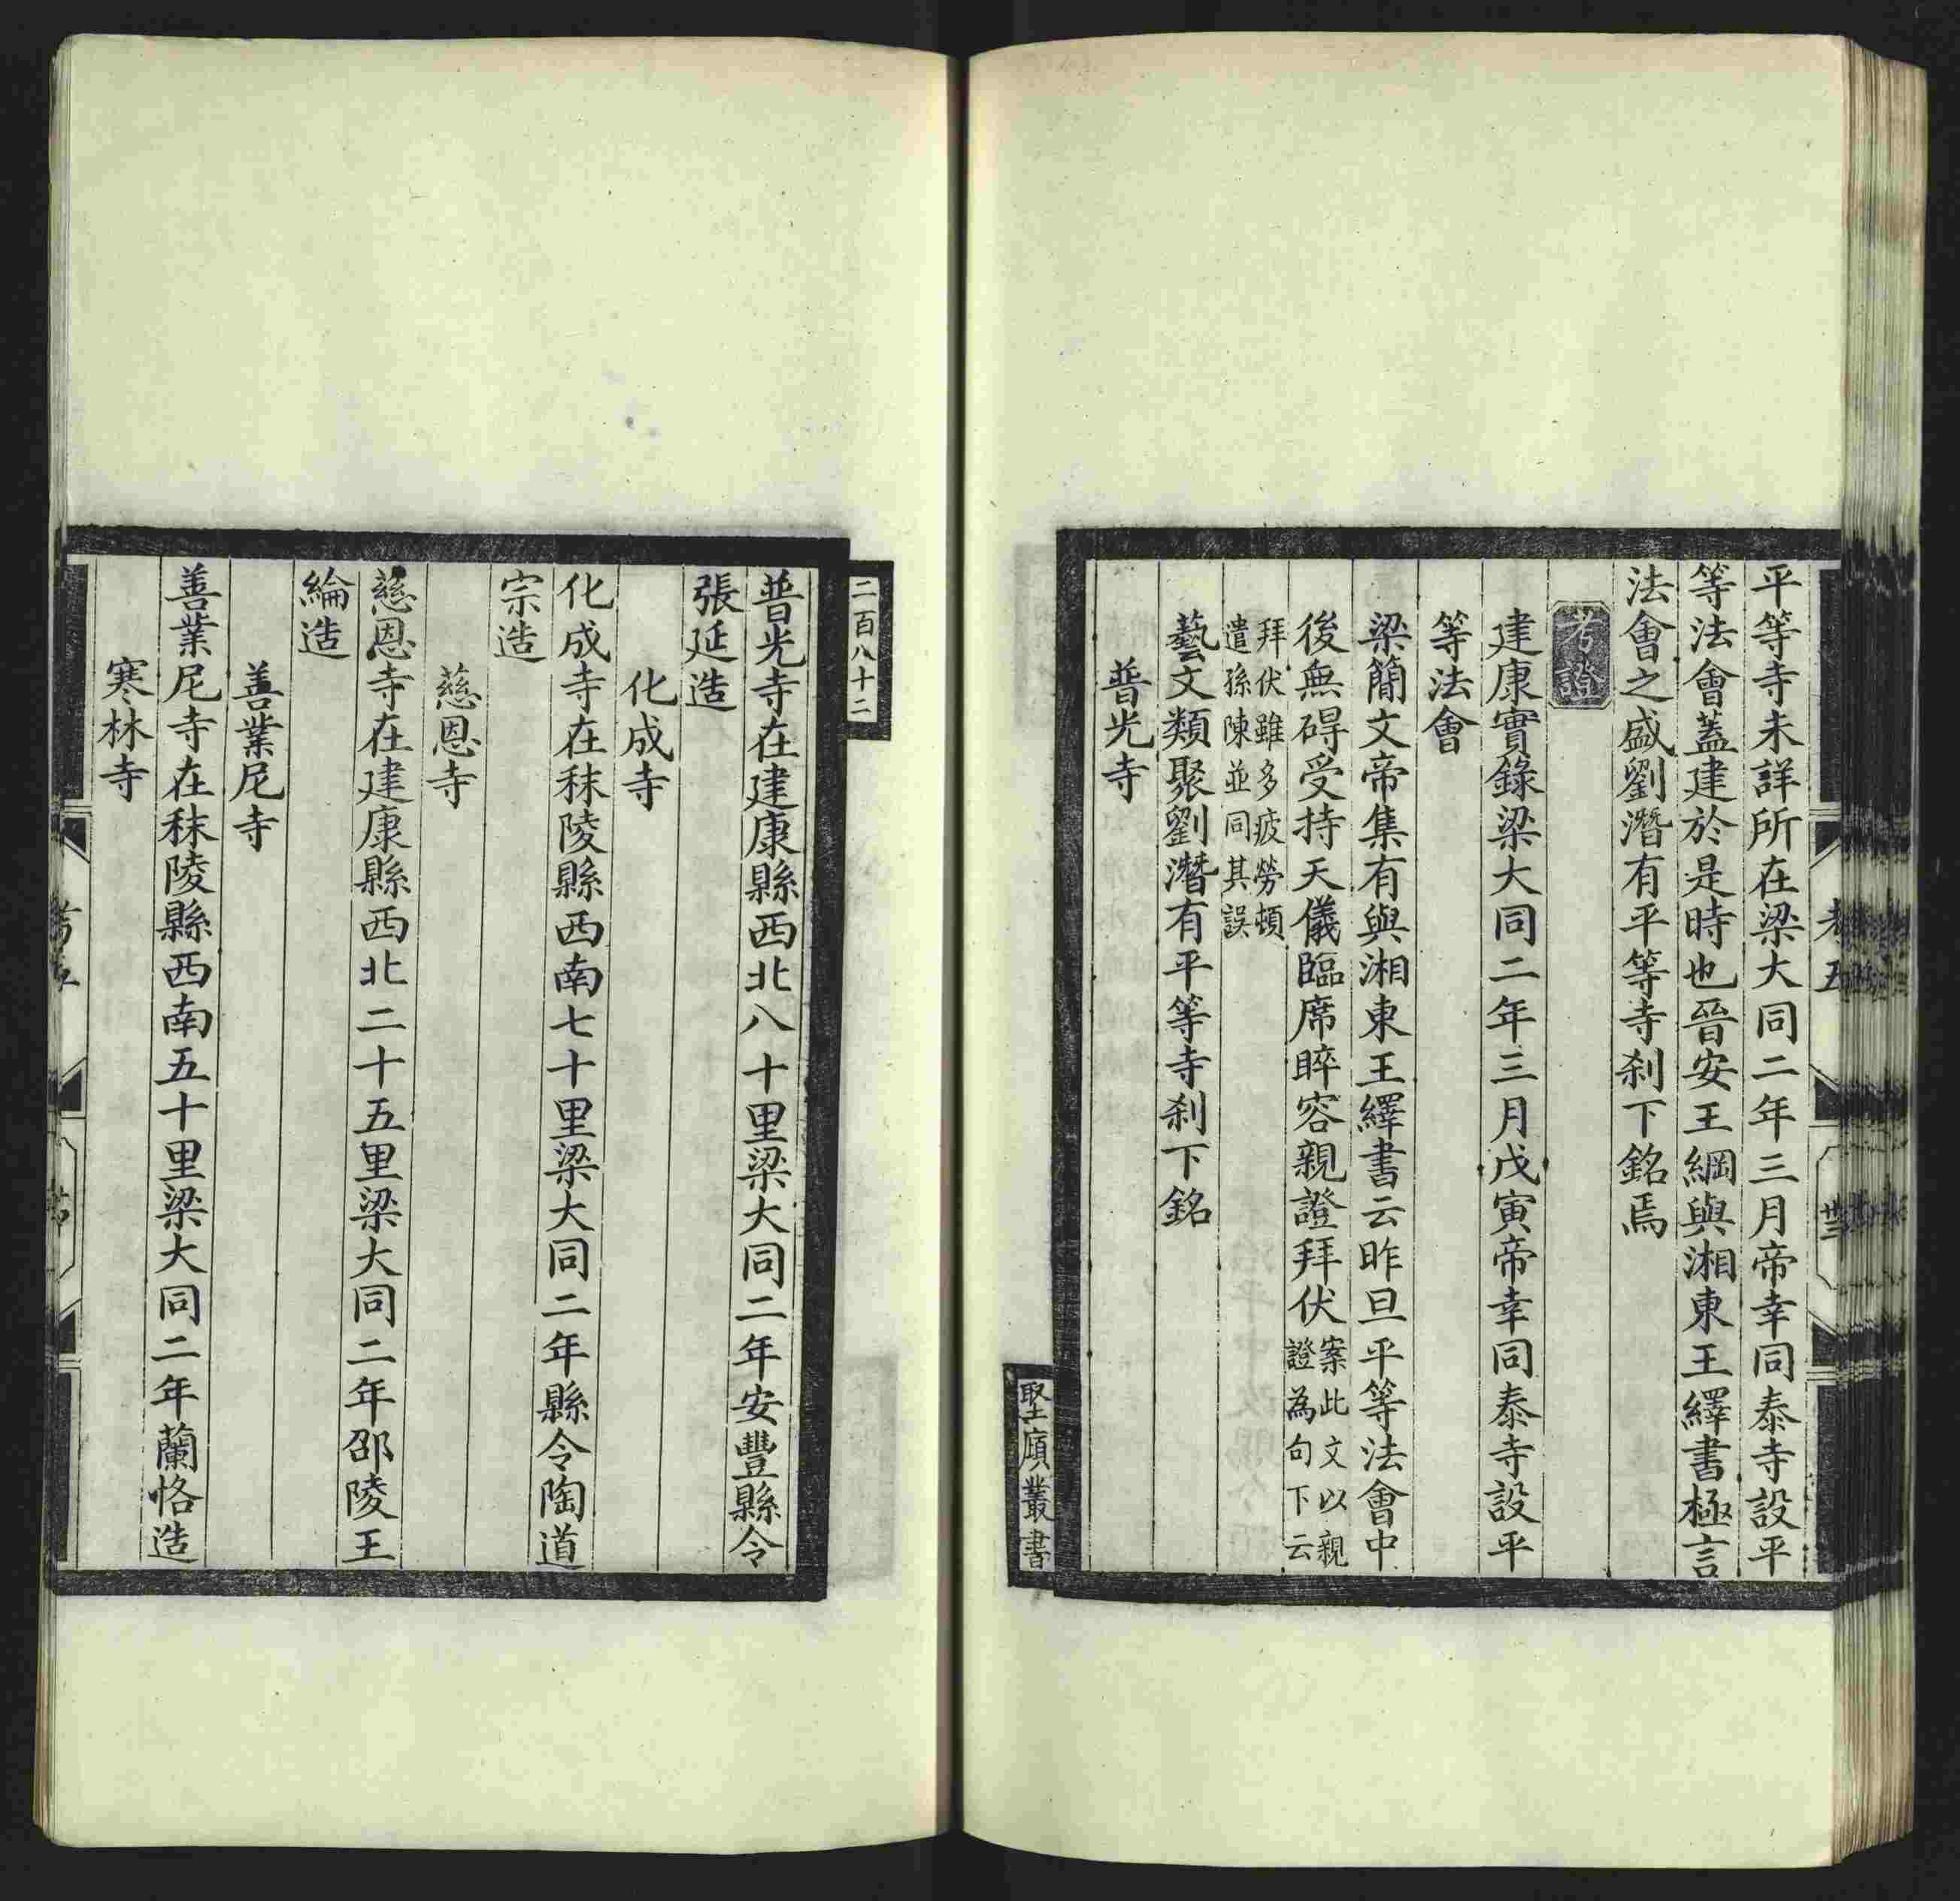 平等寺未詳所在梁大同二年三月帝幸同泰寺設平
等法會蓋建於是時也晉安王綱與湘東王繹書極言
法會之盛劉潛有平等寺刹下銘焉
考證
建康實錄梁大同二年三月戊寅帝幸同泰寺設平
等法會
梁簡文帝集有與湘東王繹書云昨旦平等法會中
後無碍受持天儀臨席睟容親證拜伏案此文以親證為句下云
拜伏雖多疲勞頓遣孫陳並同其誤
藝文類聚劉潛有平等寺刹下銘
普光寺
卷五
堅頎叢書
二百八十二
普光寺在建康縣西北八十里梁大同二年安豐縣令
張延造
化成寺
化成寺在秣陵縣西南七十里梁大同二年縣令陶道
宗造
慈恩寺
慈恩寺在建康縣西北二十五里梁大同二年邵陵王
綸造
善業尼寺
善業尼寺在秣陵縣西南五十里梁大同二年蘭恪造
寒林寺